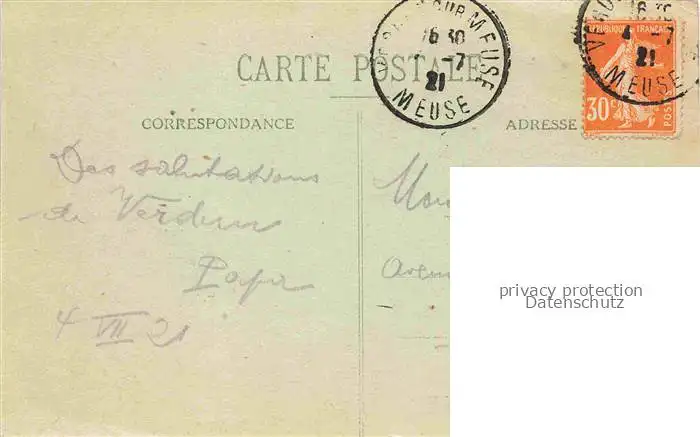 CARTE POSTALE
CORRESPONDANCE
ADRESSE
Des salutations
de Verdun
Papa
4 VII 21
SUR MEUSE
16 30
-7
21
MEUSE
REPUBLIQUE FRANÇAISE
30c
POSTES
16
4 -7
21
MEUSE
privacy protection
Datenschutz